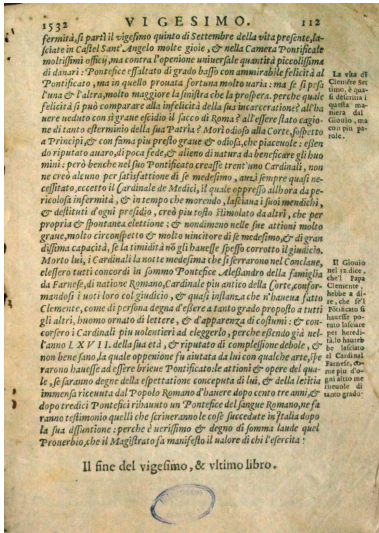 1532
VIGESIMO.
112
fermità, si partì il vigesimo quinto di Settembre della vita presente, la-
sciate in Castel Sant'Angelo molte gioie, & nella Camera Pontificale
moltissimi officij, ma contra l'openione universale quantità piccolissima
di danari: Pontefice essaltato di grado basso con ammirabile felicità al
Pontificato, ma in quello prouata fortuna molto uaria: ma se si pesa
l'una & l'altra, molto maggiore la sinistra che la prospera. perche quale
felicità si può comparare alla infelicità della sua incarceratione? all'ha
uere ueduto con sì graue escidio il sacco di Roma? all'essere stato cagio-
ne di tanto esterminio della sua Patria? Morì odioso alla Corte, sospetto
a Principi, & con fama piu presto graue & odiosa, che piaceuole: essen-
do riputato auaro, di poca fede, & alieno di natura da beneficare gli huo
mini: però benche nel suo Pontificato creasse trent'uno Cardinali, non
ne creò alcuno per satisfattione di se medesimo, anzi sempre quasi ne-
cessitato, eccetto il Cardinale de Medici, il quale oppresso allhora da pe-
ricolosa infermità, & in tempo che morendo, lasciaua i suoi mendichi,
& destituti d'ogni presidio, creò piu tosto stimolato da altri, che per
propria & spontanea elettione: & nondimeno nelle sue attioni molto
graue, molto circospetto & molto uincitore di se medesimo, & di gran
dissima capacità, se la timidità nō gli hauesse spesso corrotto il giudicio.
Morto lui, i Cardinali la notte medesima che si serrarono nel Conclaue,
elessero tutti concordi in sommo Pontefice Alessandro della famiglia
da Farnese, di natione Romano, Cardinale piu antico della Corte, confor-
mandosi i uoti loro col giudicio, & quasi instanza che n'haueua fatto
Clemente, come di persona degna d'essere a tanto grado proposto a tutti
gli altri, huomo ornato di lettere, & d'apparenza di costumi: & con-
corsero i Cardinali piu uolentieri ad eleggerlo, perche essendo già nel-
l'anno LXVII. della sua età, & riputato di complessione debole, &
non bene sano, la quale oppenione fu aiutata da lui con qualche arte, spe
rarono hauesse ad essere brieue Pontificato: le attioni & opere del qua-
le, se saranno degne della espettatione conceputa di lui, & della letitia
immensa riceuuta dal Popolo Romano d'hauere dopo cento tre anni, &
dopo tredici Pontefici rihauuto un Pontefice del sangue Romano, ne fa
ranno testimonio quelli che scriueranno le cose succedute in Italia dopo
la sua assuntione: perche è uerissimo & degno di somma laude quel
Prouerbio, che il Magistrato fa manifesto il ualore di chi l'esercita:
La vita di
Clemẽte Set
timo, è qua-
si descritta i
questa ma-
niera dal
Giouio, ma
con piu pa-
role.
Il Giouio
nel 32. dice,
che'l Papa
Clemente,
hebbe a di-
re, che se'l
Pōtificato si
hauesse po-
tuto lasciare
per heredi-
tà, lo haureb
be lasciato
al Cardinal
Farnese, co-
me piu d'o-
gni altro me
riteuole di
tanto grado
Il fine del vigesimo, & vltimo libro.